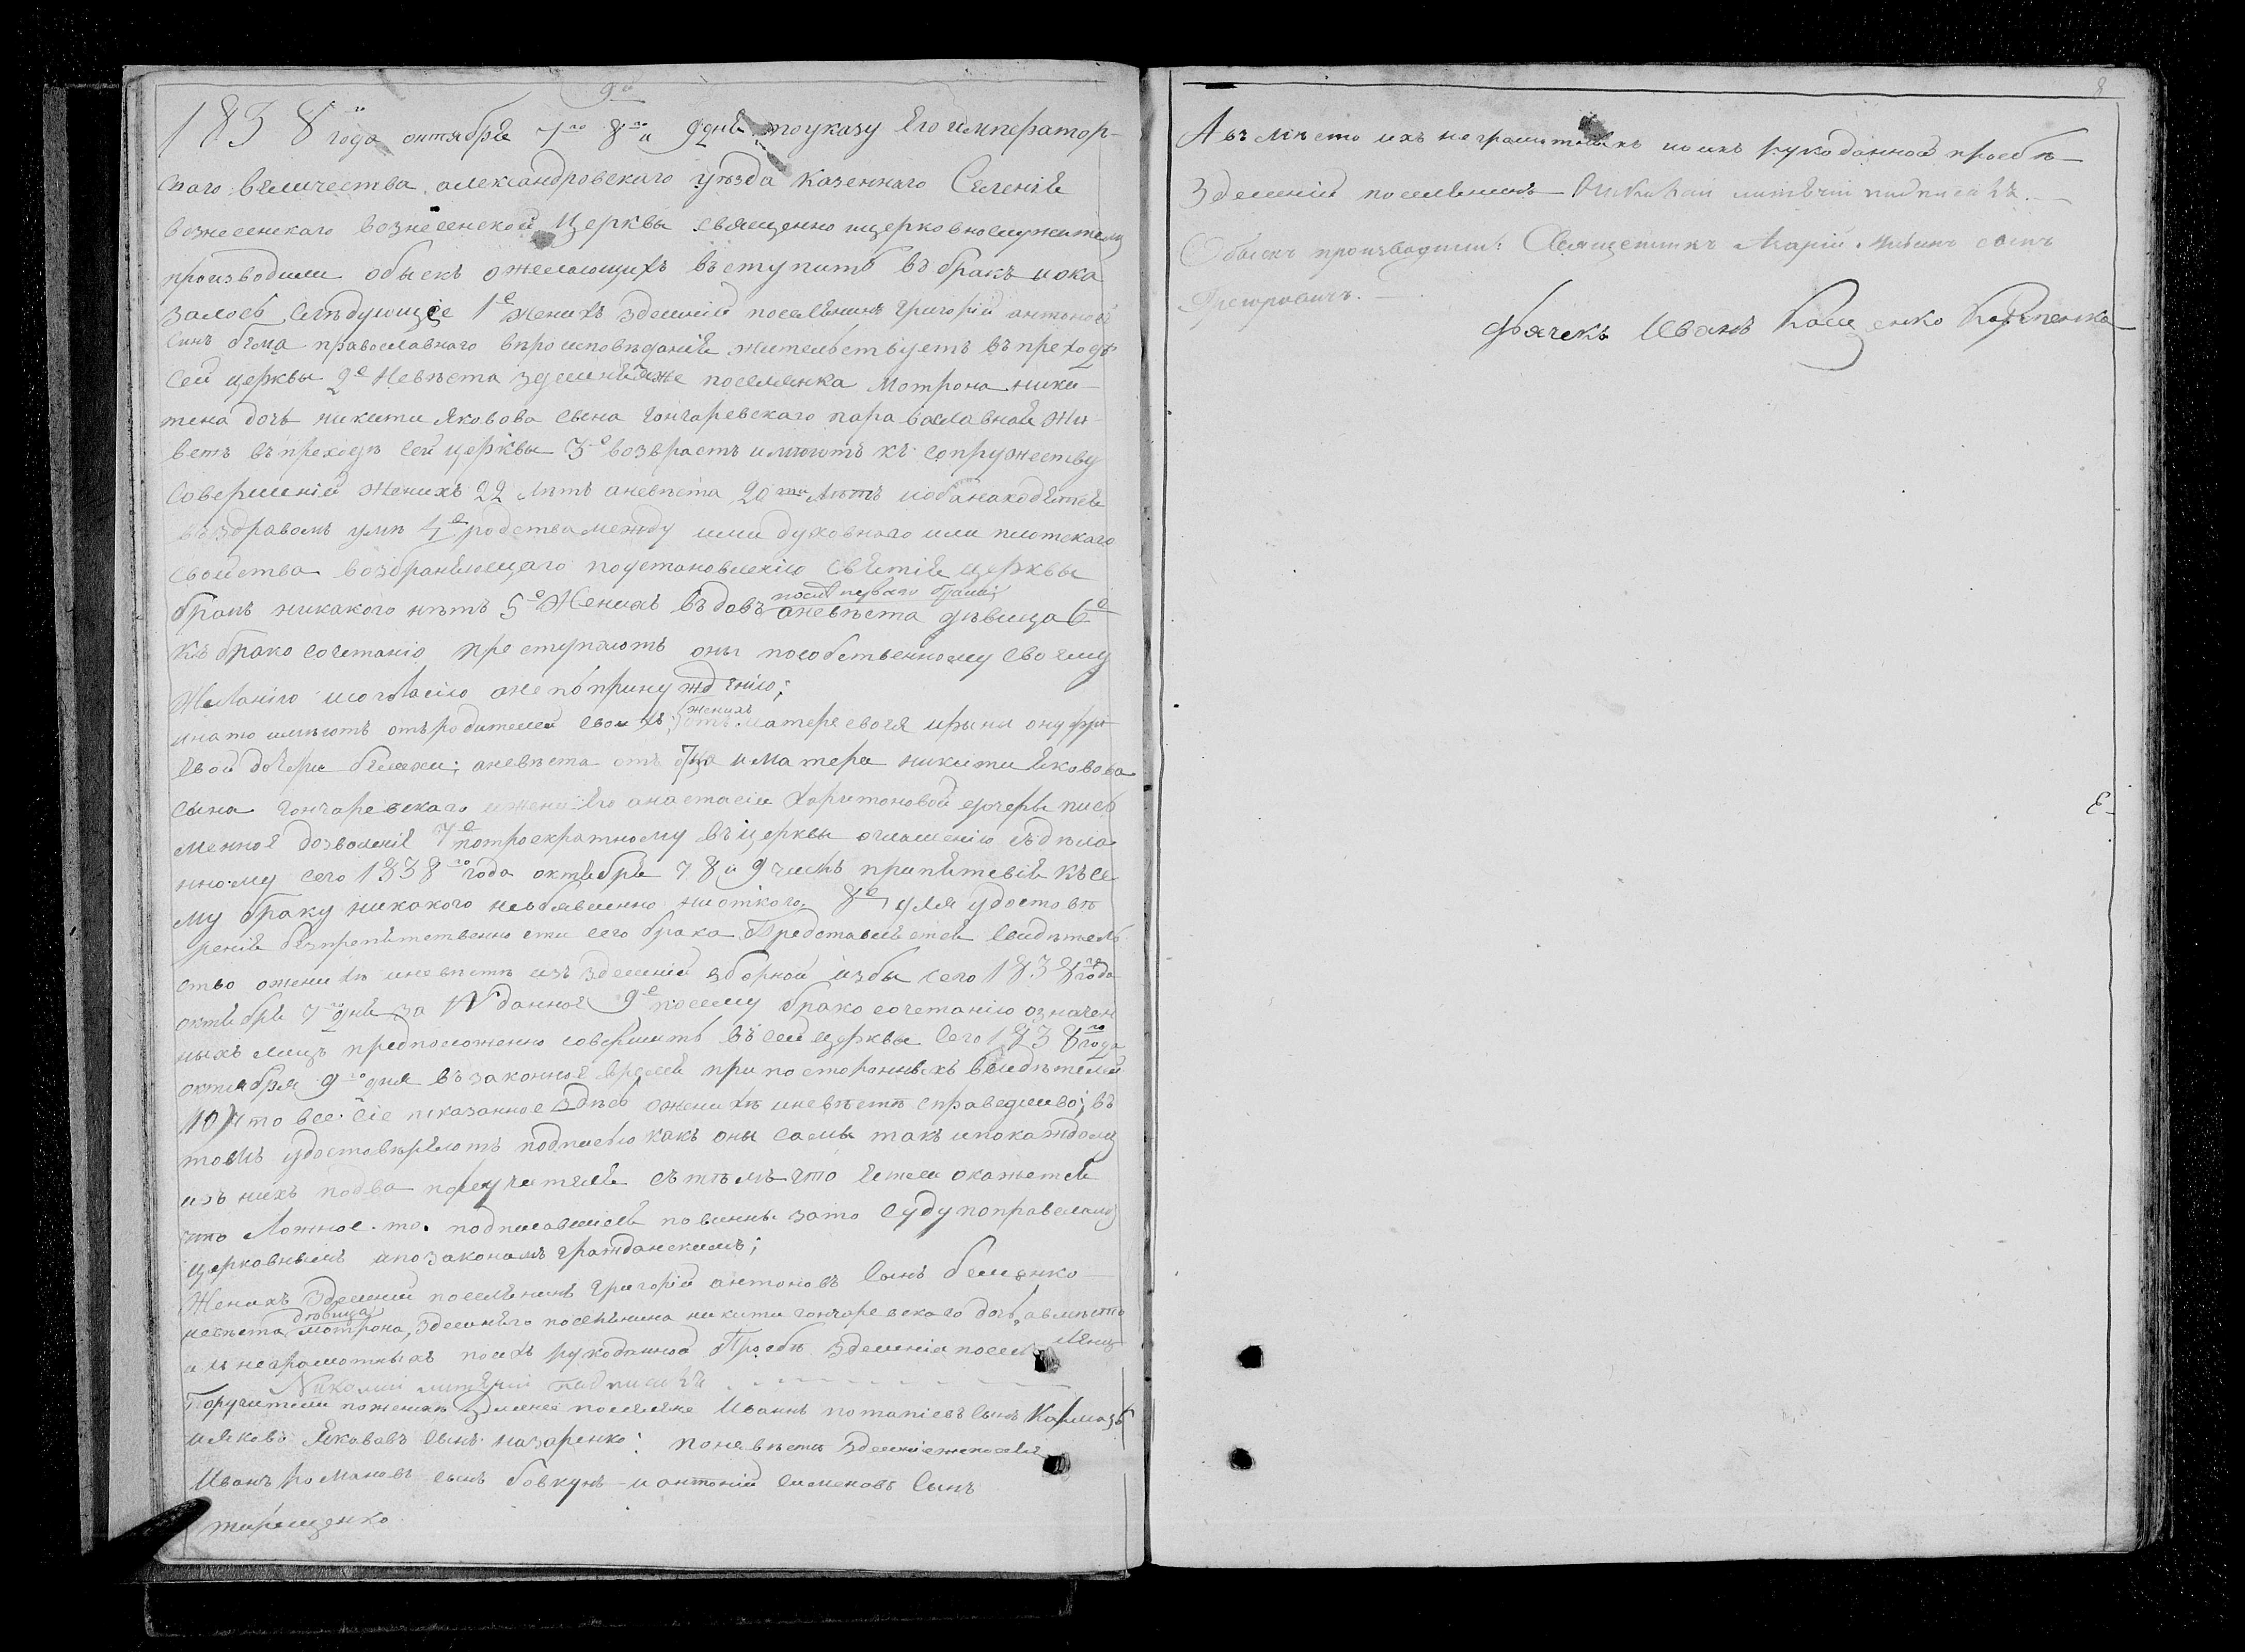 9й
1838го года октября 7го 8го и 9 дня по указу Его император-
скаго величества александровскаго уѣзда казеннаго Селенія
вознесенскаго вознесенской Церквы священно ицерковнослужители
производили обыскъ ожелающихъ въступить въ бракъ иока
залось слѣдующее 1е Женихъ здешній поселянинъ григорій антоновъ
сынъ православнаго вѣроисповѣданія жительствуетъ въ преходѣ
сей церквы 2е Невѣста здешняяже поселянка Мотрона ники-
тена дочь никити Яковова сына гончаревскаго параваславной жи-
ветъ въ преходѣ сей церквы 3е возврастъ имѣютъ къ сопружеству
совершеній Женихъ 22 лѣтъ аневѣста 20 лѣтъ иобанаходятся
въ здравомъ умѣ 4е родства между ими духовнаго или плотскаго
свойства возбраняющаго поустановленію святія церквы
бракъ никакого нѣтъ 5е Женихъ въдовъ послѣ перваго брака аневѣста дѣвица 6е
къ бракосочетанію преступаютъ оны пособственному своему
Желанію исогласію ане попринуждѣнію;
инато имѣютъ отъродителей своихъ; женихъ отъ матере своея ирыни онуфрі-
евой дочери ; аневѣста отъ отца иматери никити Яковова
сына гончаревскаго ижени Его анастасіи Харитоновой дочеры пись
менное дозволеніе 7е потроекратному въцерквы оглашенію сдѣла
нному сего 1838го года октября 7 8 и 9 чиселъ припятствія късе
му браку никакого необявленно ниоткого 8е для удостовѣ
ренія безпрепятственно сти сего брака Представляется свидѣтель
ство оженихѣ иневѣстѣ изъ здешній зборной избы сего 1838го года
октября 7го дня за № данное 9е посему бракосочетанію означен
ныхъ лицъ предположенно совершить въ сей церквы сего 1838го года
октября 9го дня въ законное время при посторонныхъ свидѣтелей
10) Что все сіе показанное здѣсь оженихѣ иневѣстѣ справедливо; въ
томъ удостовѣряютъ подписью какъ оны самы такъ ипокаждому
изъ нихъ подва поручителя съ тѣмъ что Естли окажется
что Ложное то подписавшіесь повинны зато суду поправеламъ
церковнымъ ипозаконамъ гражданскимъ;
Женихъ здешній поселянинъ григорій антоновъ сынъ
невѣста дѣвица мотрона, здешняго поселянина никити гончаревскаго дочь, авмѣсто
ихъ неграмотныхъ поихъ рукоданной Прозбѣ здешній посел лянинъ
Николай подписалъ
Поручители поженихѣ здешніе поселяне Иванъ потапіевъ сынъ
иЯковъ Яковавъ сынъ назаренко: поневѣстѣ здешніежпоселя
Иванъ романовъ сынъ бовкунъ и антоній сименовъ сынъ
терещенко
8
Авъмѣсто ихъ неграмотныхъ поихъ рукоданной прозбѣ
Здешній поселянинъ подписалъ
Обыскъ производили: Священникъ

дьячекъ Иванъ